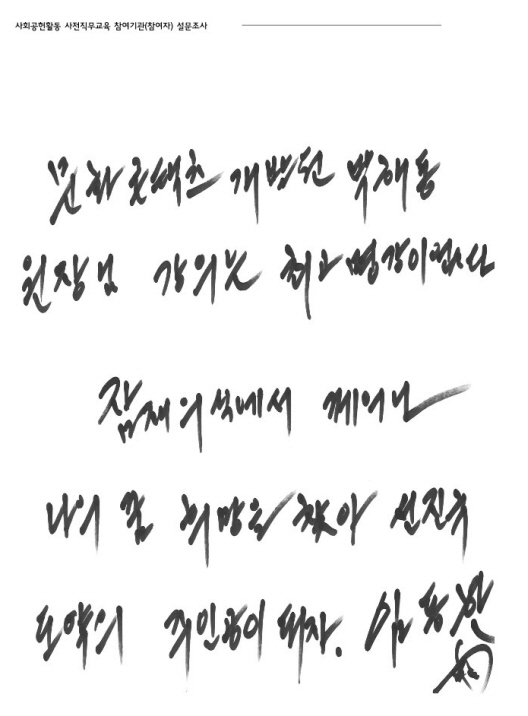 사회공헌활동 사전직무교육 참여기관(참여자) 설문조사
문화콘텐츠 개발원 박해동
원장님 강의는 최고 명강이였습니다
잠재의식에서 깨어나
나의 꿈 희망을 찾아 선진국
도약의 주인공이 되자.